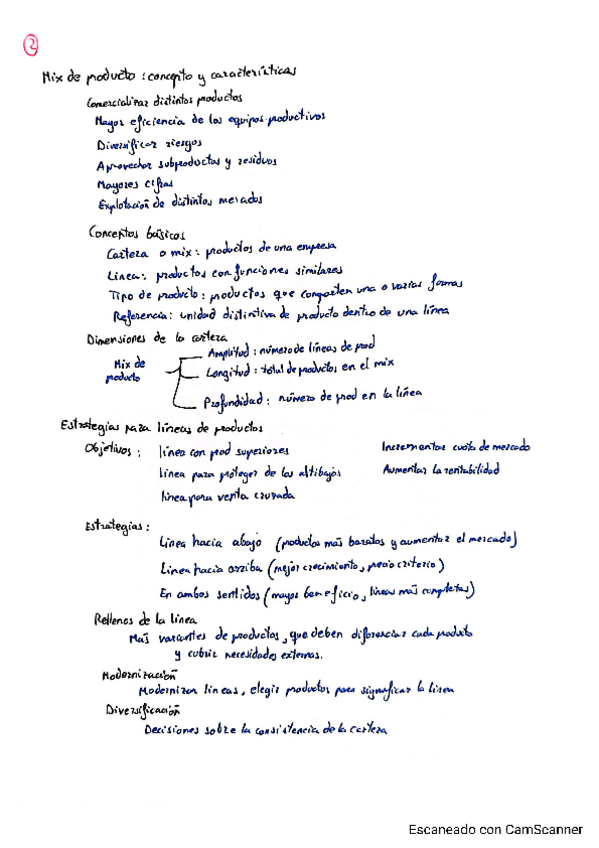 2
Mix de producto: concepto y características
Comercializar distintos productos
Mayor eficiencia de los equipos productivos
Diversificar riesgos
Aprovechar subproductos y residuos
Mayores cifras
Explotación de distintos mercados
Conceptos básicos
Cartera o mix: productos de una empresa
Línea: productos con funciones similares
Tipo de producto: productos que comparten una o varias formas
Referencia: unidad distintiva de producto dentro de una línea
Dimensiones de la cartera
Mix de producto
Amplitud: número de líneas de prod
Longitud: total de productos en el mix
Profundidad: número de prod en la línea
Estrategias para líneas de productos
Objetivos: línea con prod superiores Incrementar cuota de mercado
línea para proteger de los altibajos Aumentar la rentabilidad
línea para venta cruzada
Estrategias:
Línea hacia abajo (productos más baratos y aumentar el mercado)
Línea hacia arriba (mejor crecimiento, precio criterio)
En ambos sentidos (mayor beneficio, líneas más completas)
Rellenos de la línea
Más variantes de productos, que deben diferenciar cada producto
y cubrir necesidades externas.
Modernización
Modernizar líneas, elegir productos para significar la línea
Diversificación
Decisiones sobre la consistencia de la cartera
Escaneado con CamScanner